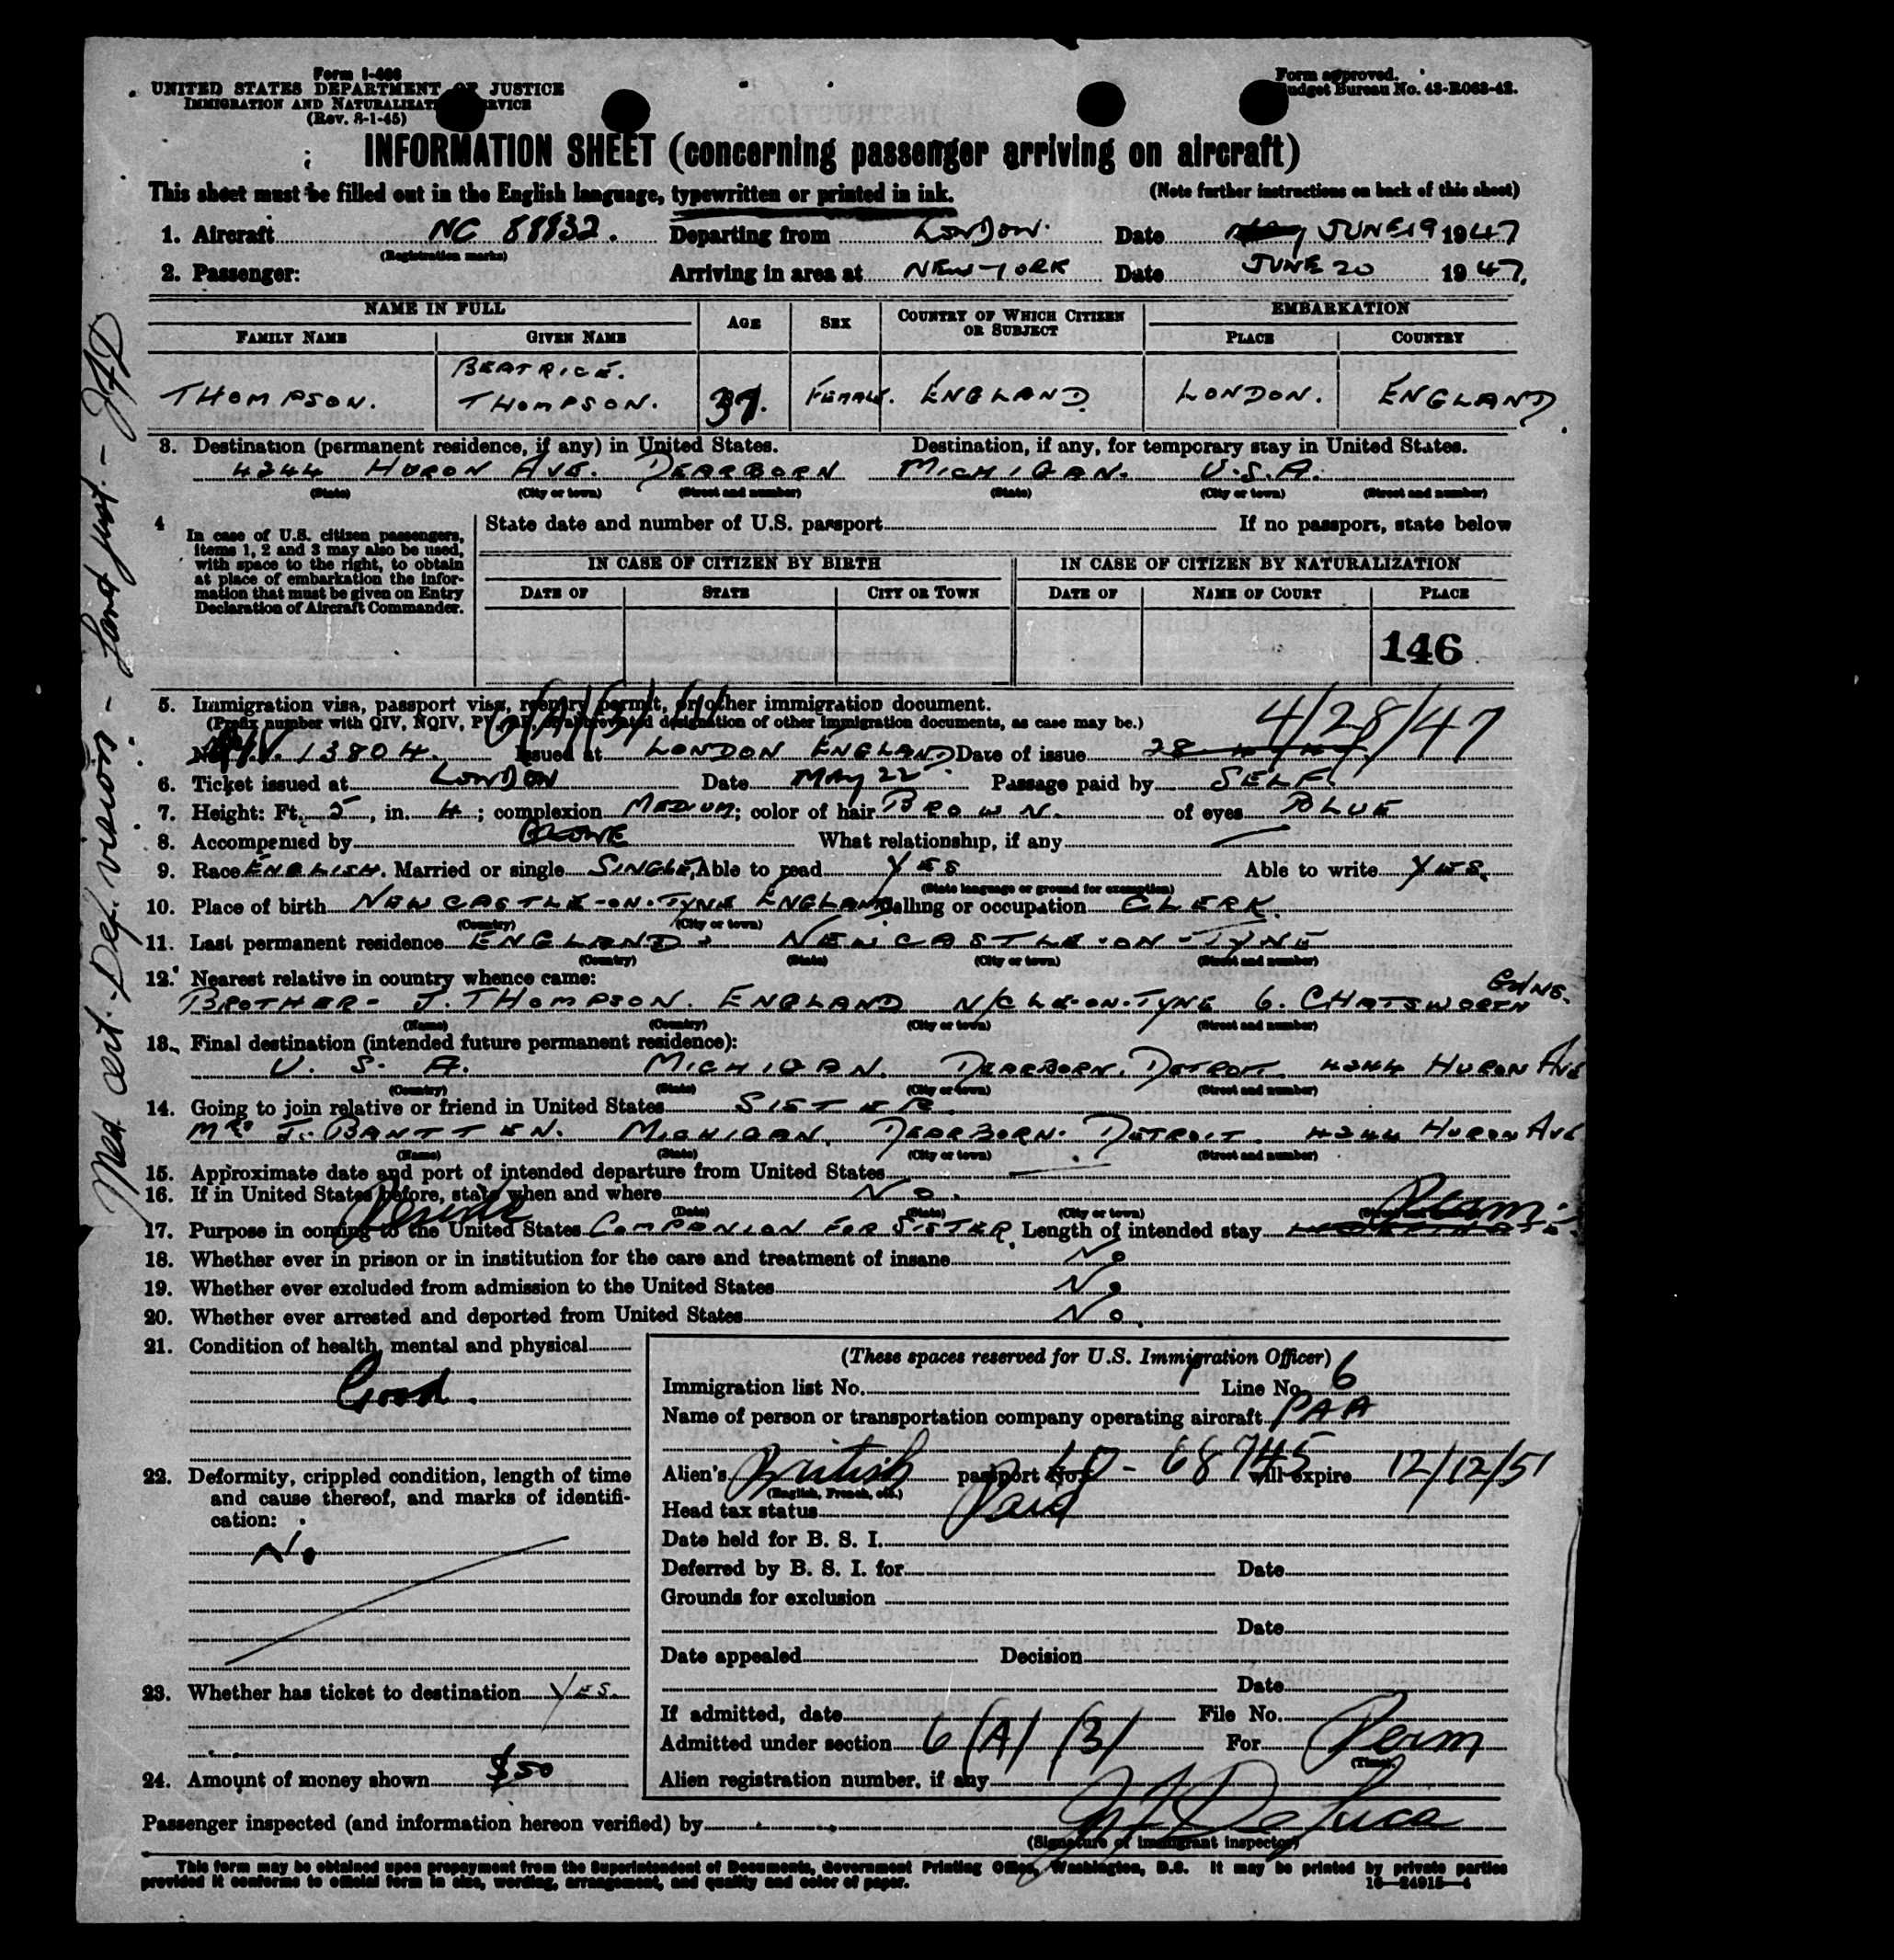 Form I-466
UNITED STATES DEPARTMENT OF JUSTICE
IMMIGRATION AND NATURALIZATION SERVICE
(Rev. 8-1-45)
Form approved.
Budget Bureau No. 43-R063-42.
INFORMATION SHEET (concerning passenger arriving on aircraft)
This sheet must be filled out in the English language, typewritten or printed in ink. (Note further instructions on back of this sheet)
1. Aircraft NC 88832. Departing from LONDON. Date JUNE 19 1947
(Registration marks)
2. Passenger: Arriving in area at NEW-YORK Date JUNE 20 1947,
NAME IN FULL AGE SEX COUNTRY OF WHICH CITIZEN OR SUBJECT EMBARKATION
FAMILY NAME GIVEN NAME PLACE COUNTRY
BEATRICE.
THOMPSON. THOMPSON. 37. FEMALE. ENGLAND LONDON. ENGLAND
3. Destination (permanent residence, if any) in United States. Destination, if any, for temporary stay in United States.
4244 HURON AVE. DEARBORN MICHIGAN. U.S.A.
(State) (City or town) (Street and number) (State) (City or town) (Street and number)
4 In case of U.S. citizen passengers, items 1, 2 and 3 may also be used, with space to the right, to obtain at place of embarkation the information that must be given on Entry Declaration of Aircraft Commander.
State date and number of U.S. passport If no passport, state below
IN CASE OF CITIZEN BY BIRTH IN CASE OF CITIZEN BY NATURALIZATION
DATE OF STATE CITY OR TOWN DATE OF NAME OF COURT PLACE
146
5. Immigration visa, passport visa, reentry permit, or other immigration document.
(Prefix number with QIV, NQIV, PV, RP, or abbreviated designation of other immigration documents, as case may be.) 4/28/47
No. QIV. 13804. Issued at LONDON ENGLAND Date of issue 28
6. Ticket issued at LONDON Date MAY 22 Passage paid by SELF.
7. Height: Ft. 5, in. 4; complexion MEDIUM; color of hair BROWN. of eyes BLUE
8. Accompanied by ALONE What relationship, if any
9. Race ENGLISH. Married or single SINGLE, Able to read YES Able to write YES.
(State language or ground for exemption)
10. Place of birth NEWCASTLE-ON-TYNE ENGLAND Calling or occupation CLERK.
(Country) (City or town)
11. Last permanent residence ENGLAND. NEWCASTLE-ON-TYNE
(Country) (State) (City or town) (Street and number)
12. Nearest relative in country whence came:
BROTHER- J. THOMPSON. ENGLAND N/CLE-ON-TYNE 6. CHATSWORTH GDNS.
(Name) (Country) (City or town) (Street and number)
13. Final destination (intended future permanent residence):
U. S. A. MICHIGAN. DEARBORN. DETROIT. 4244 HURON AVE
(Country) (State) (City or town) (Street and number)
14. Going to join relative or friend in United States SISTER.
MRS J. BANTTEN. MICHIGAN. DEARBORN. DETROIT. 4244 HURON AVE
(Name) (State) (City or town) (Street and number)
15. Approximate date and port of intended departure from United States
16. If in United States before, state when and where No.
(Date) (State) (City or town) (Street and number)
17. Purpose in coming to the United States Reside COMPANION FOR SISTER. Length of intended stay Perm.
18. Whether ever in prison or in institution for the care and treatment of insane No
19. Whether ever excluded from admission to the United States No
20. Whether ever arrested and deported from United States No.
21. Condition of health, mental and physical
Good.
22. Deformity, crippled condition, length of time and cause thereof, and marks of identification:
No
23. Whether has ticket to destination YES.
24. Amount of money shown $50
(These spaces reserved for U.S. Immigration Officer)
Immigration list No. 1 Line No. 6
Name of person or transportation company operating aircraft PAA
Alien's British passport No. LO - 68745 will expire 12/12/51
(English, French, etc.)
Head tax status Paid
Date held for B. S. I.
Deferred by B. S. I. for Date
Grounds for exclusion
Date
Date appealed Decision
Date
If admitted, date File No.
Admitted under section 6/A/ /3/ For Perm
(Time)
Alien registration number, if any
Passenger inspected (and information hereon verified) by
(Signature of immigrant inspector)
This form may be obtained upon prepayment from the Superintendent of Documents, Government Printing Office, Washington, D.C. It may be printed by private parties
provided it conforms to official form in size, wording, arrangement, and quality and color of paper. 16—24915-4
Med. cert. Def. vision -